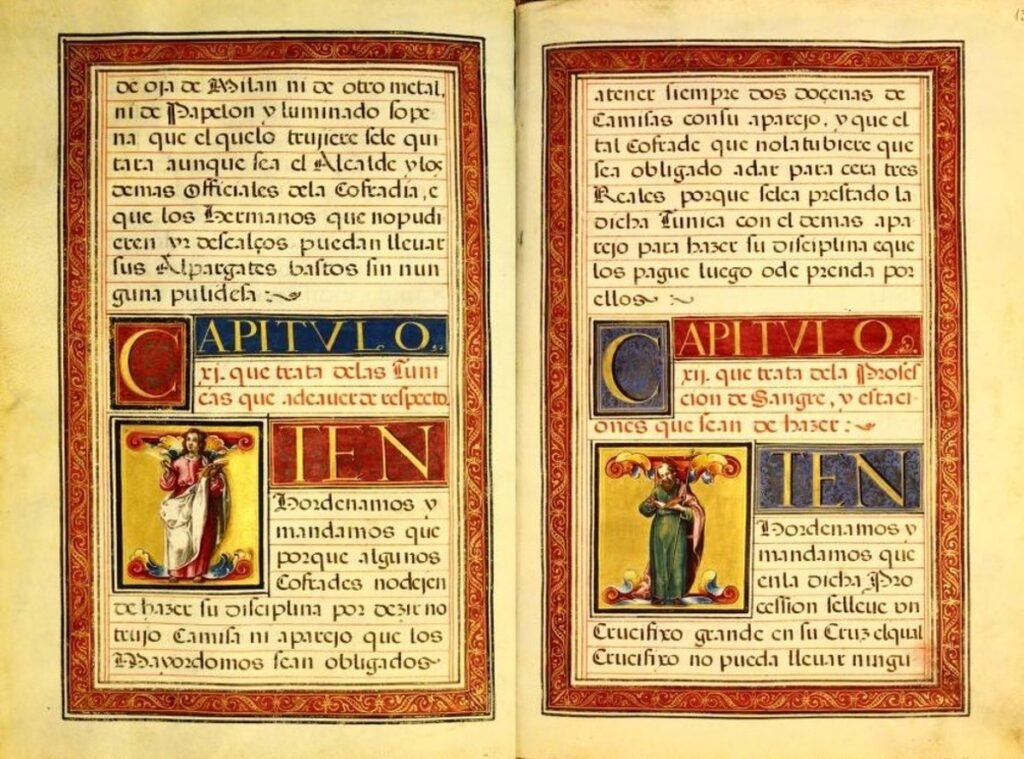 de oja de Milan ni de otro metal,
ni de Papelon y luminado sope
na que el quelo trujiere sele qui
tara aunque sea el Alcalde y los
demas Officiales dela Cofradia, e
que los Hermanos que nopudi
eren yr descalços puedan lleuar
sus Alpargates bastos sin nun
guna pulideſa :~
CAPITVLO.
xj. que trata delas Tuni
cas que adeauer de respecto.
ITEN
Hordenamos y
mandamos que
porque algunos
Cofrades nodejen
de hazer su disciplina por dezir no
trujo Camisa ni aparejo que los
Mayordomos sean obligados~
atener siempre dos doçenas de
Camisas consu aparejo, y que el
tal Cofrade que nolatubiere que
sea obligado adar para cera tres
Reales porque selea prestado la
dicha Tunica con el demas apa
rejo para hazer su disciplina eque
los pague luego ode prenda por
ellos~ :~
CAPITVLO.
xij. que trata dela Proses
cion de Sangre, y estaci-
ones que sean de hazer :~
ITEN
Hordenamos y
mandamos que
enla dicha Pro
cession selleue vn
Crucifixo grande en su Cruz elqual
Crucifixo no pueda lleuar ningu